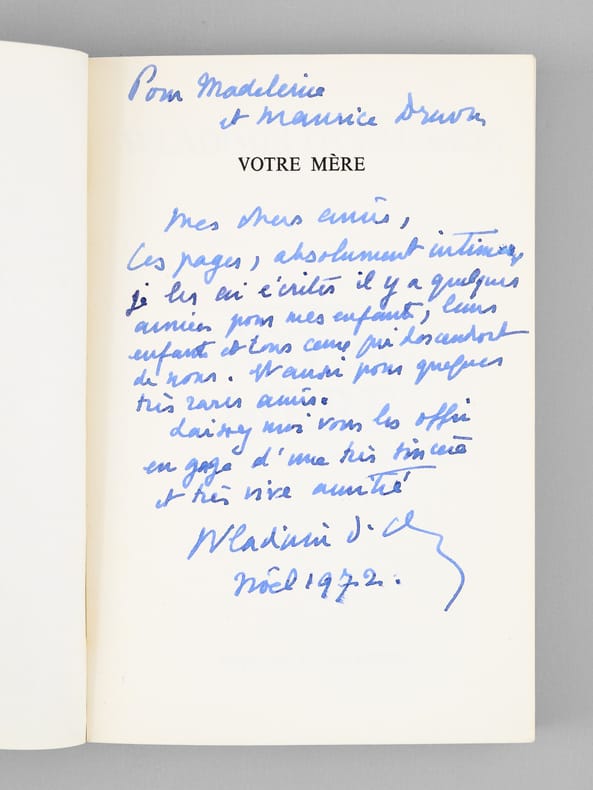 Pour Madeleine
et Maurice Druon
VOTRE MÈRE
Mes chers amis,
Ces pages, absolument intimes,
je les ai écrites il y a quelques
années pour mes enfants, leurs
enfants et tous ceux qui descendront
de nous. Et aussi pour quelques
très rares amis.
Laissez moi vous les offrir
en gage d'une très sincère
et très vive amitié
Wladimir d'
Nöel 1972.